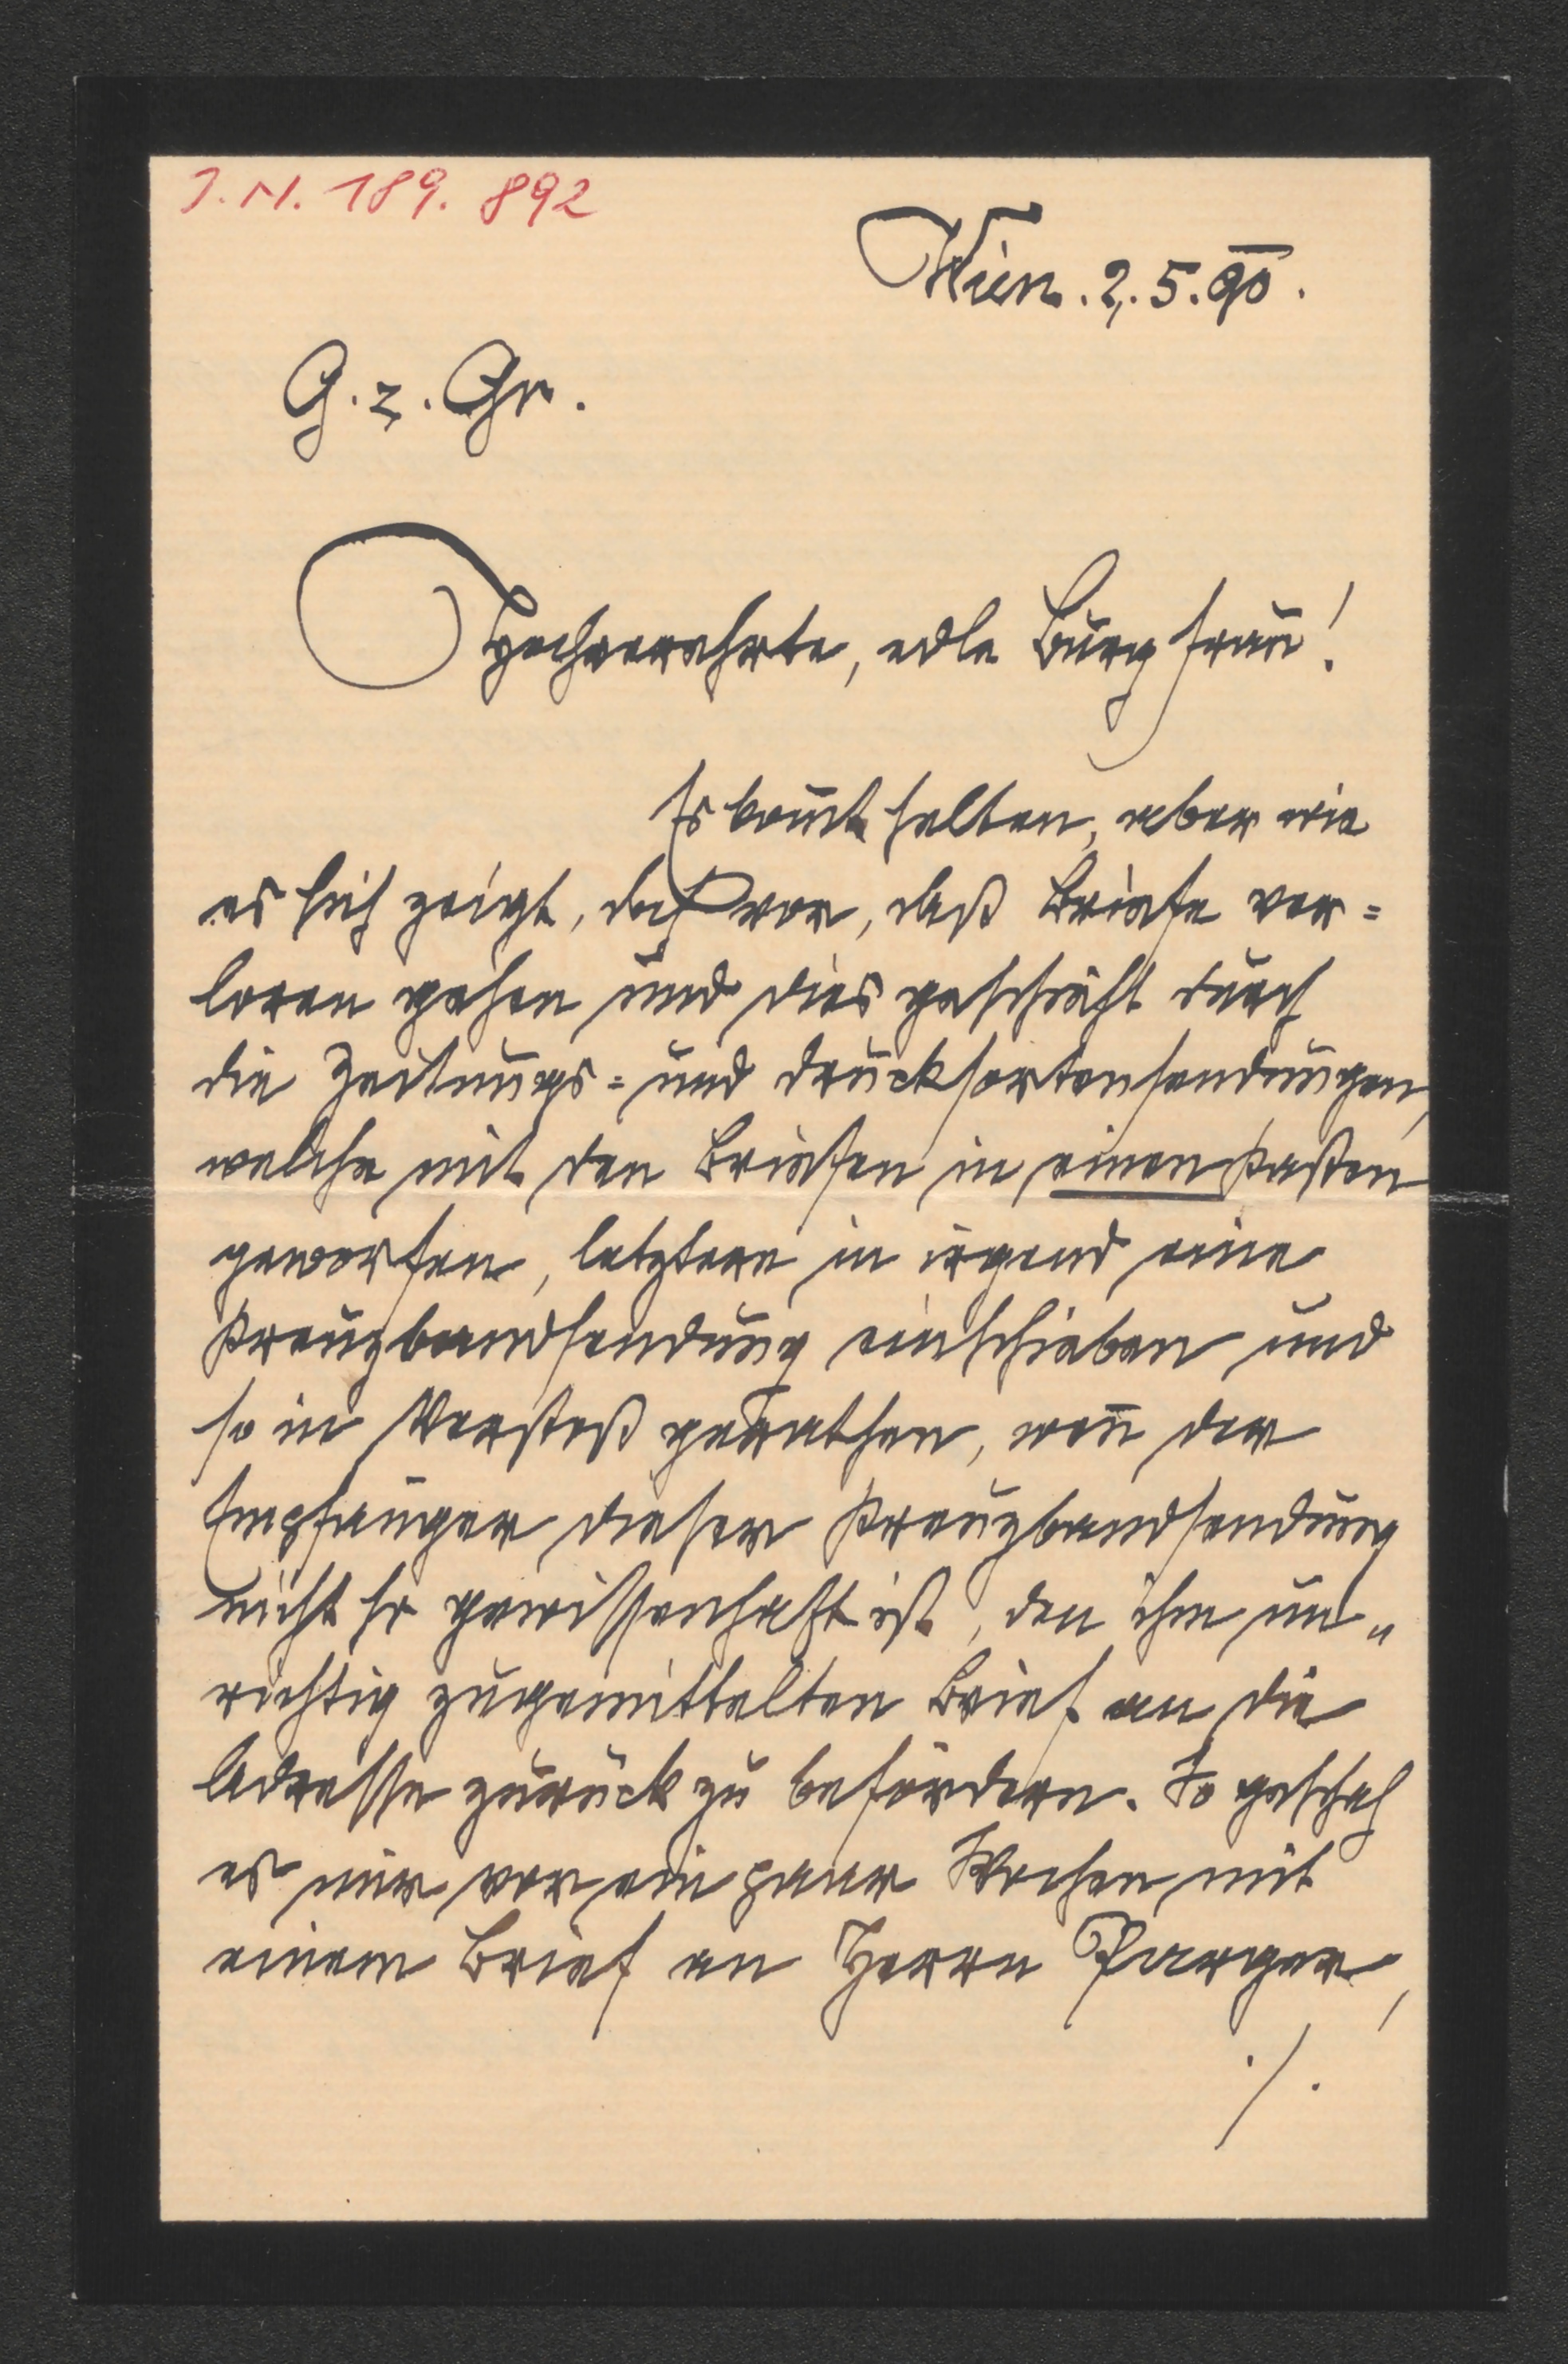 J.N. 189.892
Wien. 2.5.90.
G. z. Gr.
Hochverehrte, edle Burgfrau!
Es kom̄t selten, aber wie
es sich zeigt, doch vor, daß Briefe ver=
loren gehen und dies geschieht durch
die Zeitungs= und Drucksortensendungen,
welche mit den Briefen in einen Kasten
geworfen, letztere in irgend eine
Kreuzbandsendung einschieben und
so in Verstoß gerathen, wen̄ der
Empfänger dieser Kreuzbandsendung
nicht so gewissenhaft ist, den ihm un„
richtig zugemittelten Brief an die
Adresse zurück zu befördern. So geschah
es mir vor ein paar Wochen mit
einem Brief an Herrn Purger,
./.